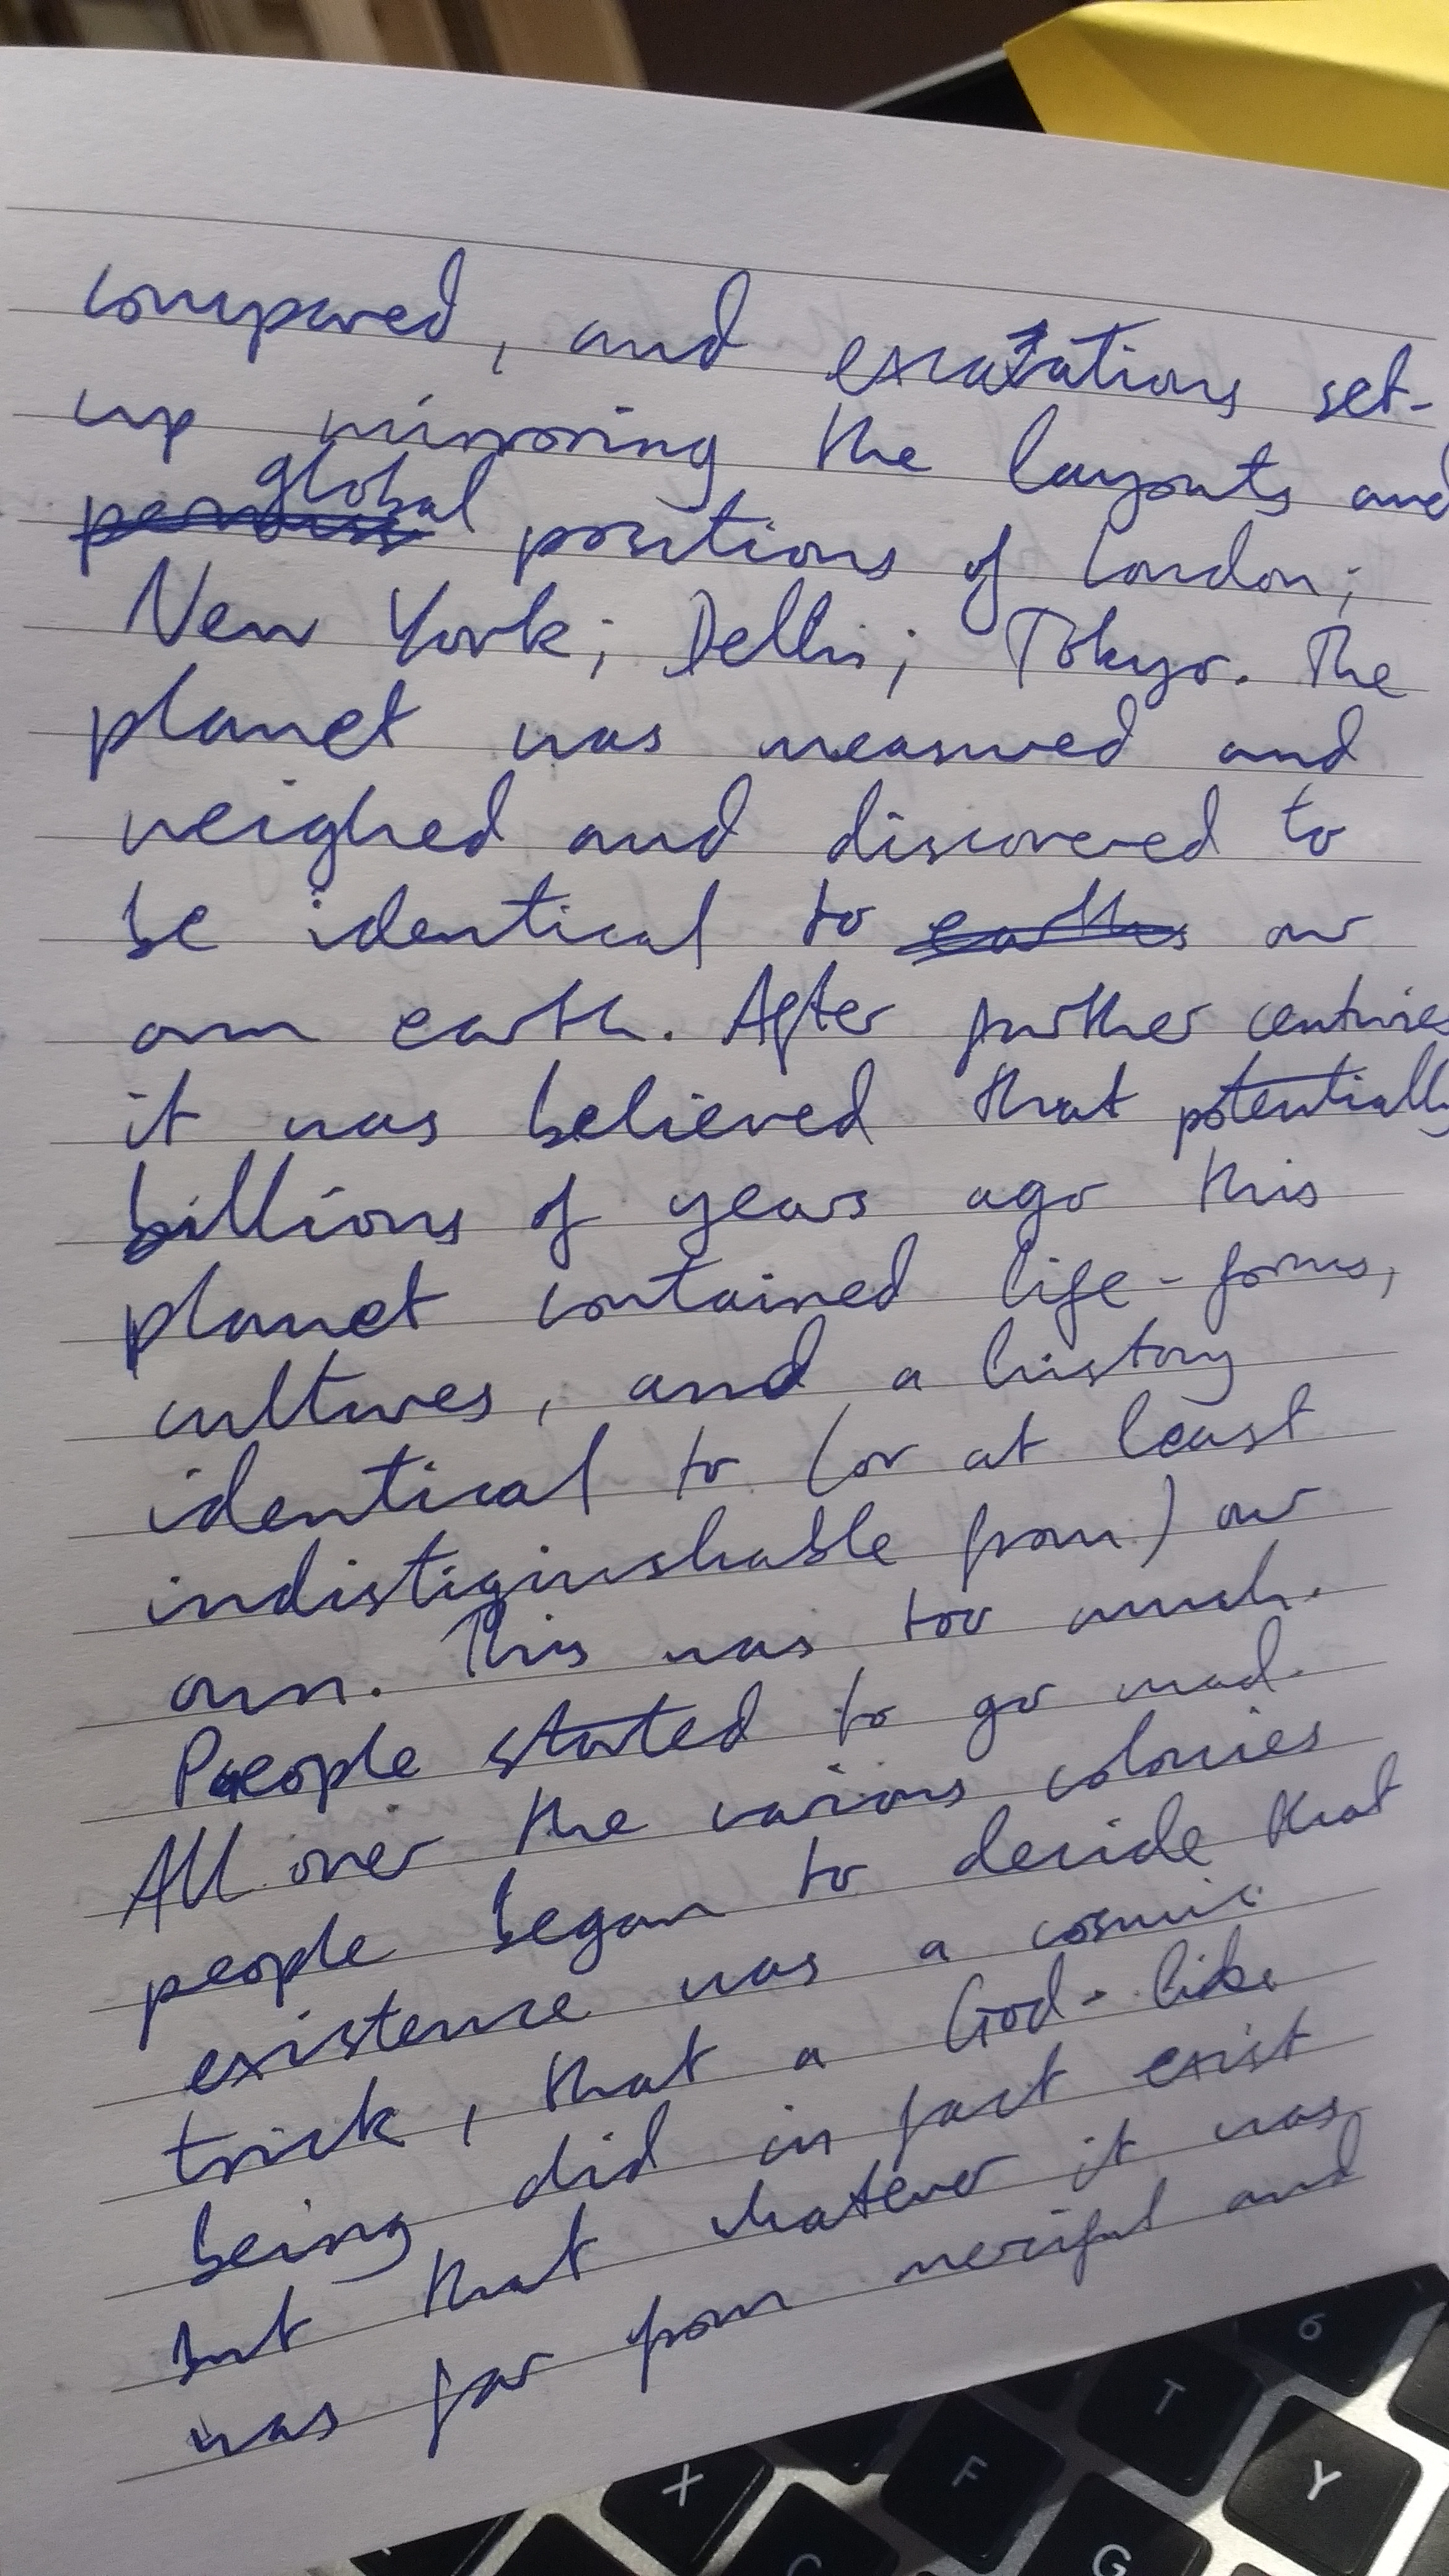 compared, and excatations set-
up mirroring the layouts and
global
positions of London;
New York; Delhi; Tokyo. The
planet was measured and
weighed and discovered to
be identical to earths our
own earth. After further centuries
it was believed that potentially
billions of years ago this
planet contained life-forms,
cultures, and a history
identical to (or at least
indistiguishable from) our
own. This was too much.
People started to go mad.
All over the various colonies
people began to decide that
existence was a cosmic
trick, that a God-like
being did in fact exist
but that whatever it was
was far from merciful and
6
T
Y
F
X
G
C